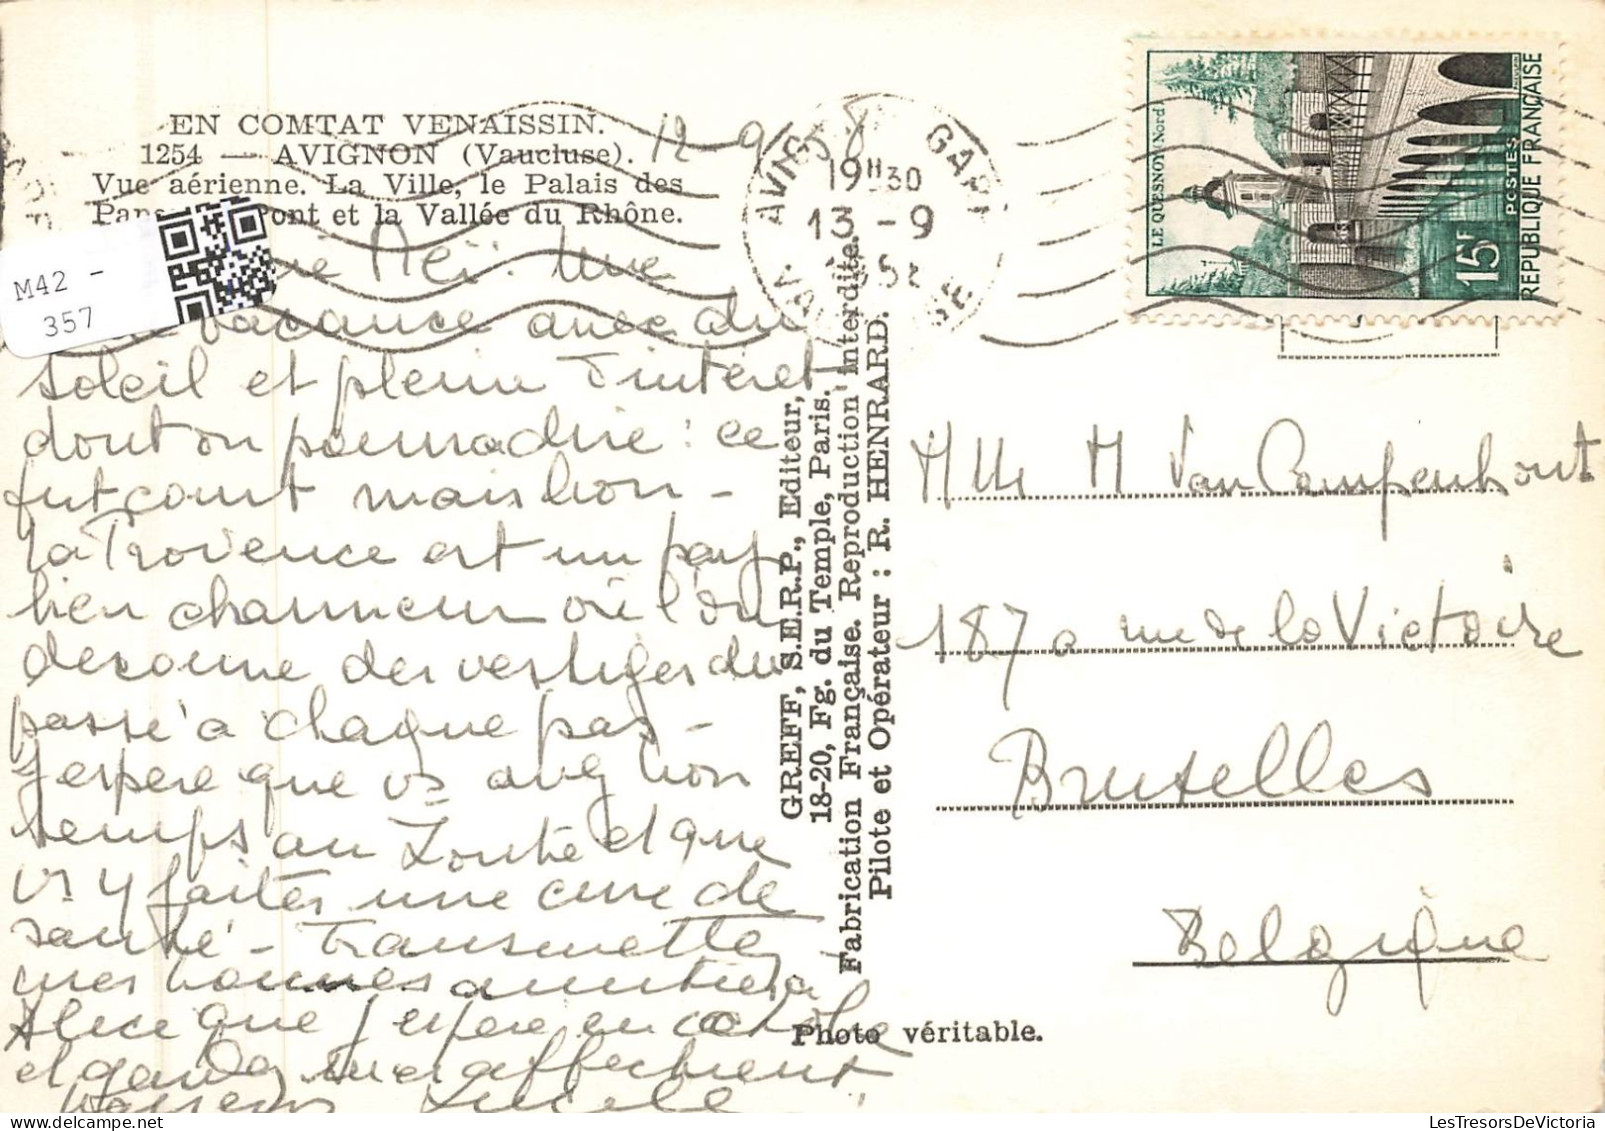 EN COMTAT VENAISSIN.
1254 — AVIGNON (Vaucluse).
Vue aérienne. La Ville, le Palais des
Pont et la Vallée du Rhône.
12 9 58
M42 -
357
Une
vacance avec du
soleil et pleine d'intéret
dont on
fut court mais bon -
la Provence est un pays
bien charmeur où l'on
decouvre des vestiges du
passé à chaque pas -
J'espere que vs avez bon
temps au Zoute et que
vs y faites une cure de
santé - Transmettez
mes bonnes amitiés à
Alice que j'espere en
et gardez mes affectueux
Lucile
GREFF, S.E.R.P., Editeur,
18-20, Fg. du Temple, Paris.
Fabrication Française. Reproduction interdite.
Pilote et Opérateur : R. HENRARD.
Photo véritable.
AVIGNON GARE
19H30
13 - 9
LE QUESNOY Nord
15F
POSTES
REPUBLIQUE FRANÇAISE
Mlle M Van Campenhout
187a rue de la Victoire
Bruxelles
Belgique
LesTresorsDeVictoria